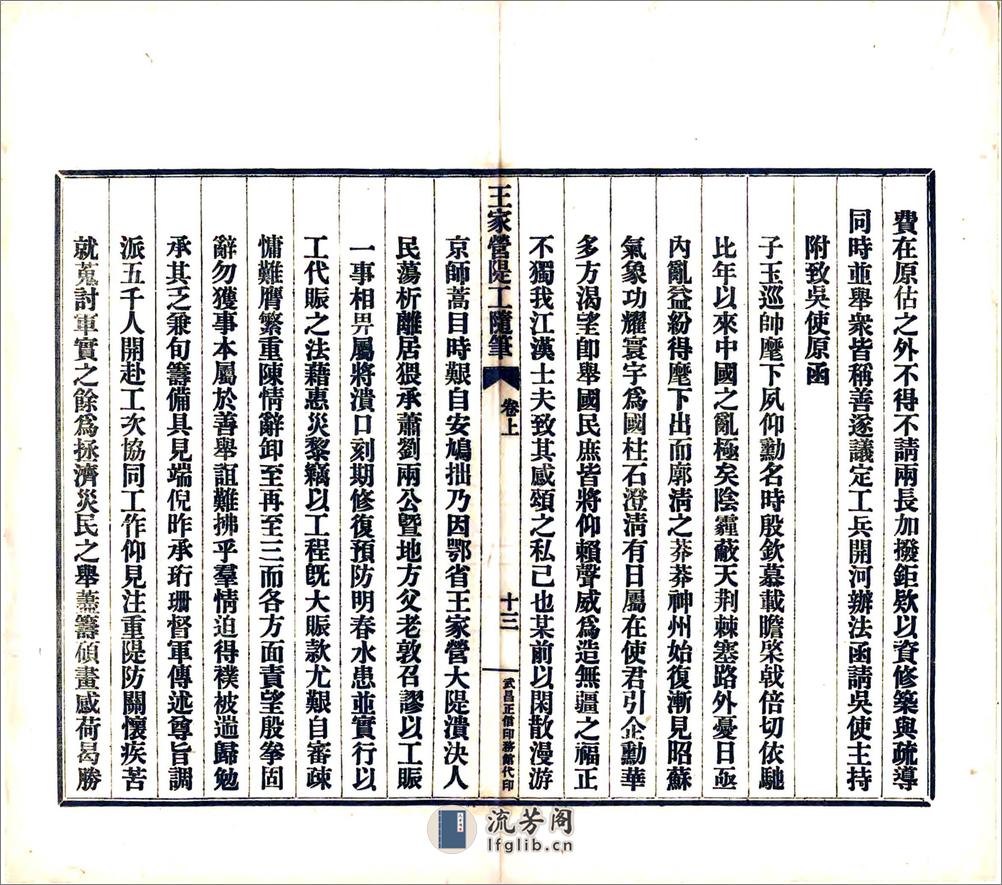 費在原估之外不得不請兩長加撥鉅欵以資修築與疏導
同時並舉衆皆稱善遂議定工兵開河辦法函請吳使主持
附致吳使原函
子玉巡帥麾下夙仰勳名時殷欽慕載瞻棨戟倍切依馳
比年以來中國之亂極矣陰霾蔽天荆棘塞路外憂日亟
內亂益紛得麾下出而廓淸之莽莽神州始復漸見昭蘇
氣象功耀寰宇爲國柱石澄淸有日屬在使君引企勳華
多方渴望卽舉國民庶皆將仰賴聲威爲造無疆之福正
不獨我江漢士夫致其感頌之私己也某前以閑散漫游
王家營隄工隨筆
卷上
十三
武昌正信印務館代印
京師蒿目時艱自安鳩拙乃因鄂省王家營大隄潰決人
民蕩析離居猥承蕭劉兩公曁地方父老敦召謬以工賑
一事相畀屬將潰口刻期修復預防明春水患並實行以
工代賑之法藉惠災黎竊以工程旣大賑款尤艱自審疎
慵難膺繁重陳情辭卸至再至三而各方面責望殷拳固
辭勿獲事本屬於善舉誼難拂乎羣情迫得襆被遄歸勉
承其乏兼旬籌備具見端倪昨承珩珊督軍傳述尊旨調
派五千人開赴工次協同工作仰見注重隄防關懷疾苦
就蒐討軍實之餘爲拯濟災民之舉藎籌碩畫感荷曷勝
流芳阁
lfglib.cn